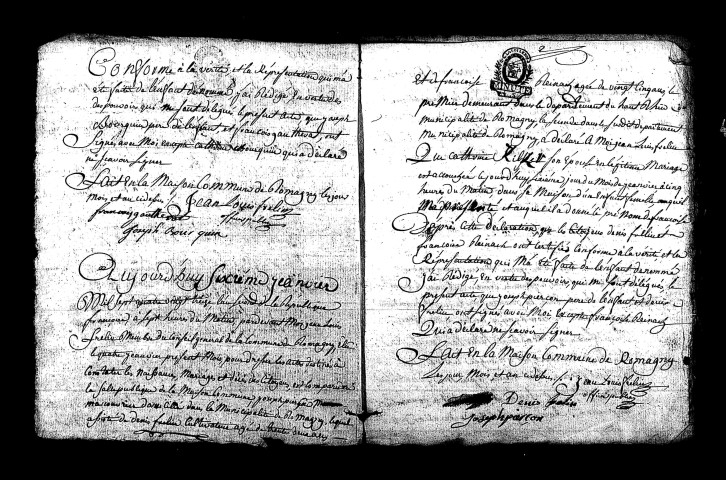 Conforme à la vérité et la Représentation qui m'a
été faite de l'enfant dénommé j'ai Rédigé en vertu des
des pouvoirs qui me sont délégués le présent acte que joseph
Bourquin père de l'enfant et françois gautherat ont
Signé avec Moi excepté catherine Bourquin qui a déclaré
ne scavoir signer
Fait en la Maison Commune de Romagny les jour
mois et an cidessus Jean Louis frelin
françois gautherat officier public
Joseph Bourquin
Aujourd'huy sixième jeanvier
Mil sept quatre vingt treize l'an second de la Republique
francoise à sept heures du Matin pardevant Moi jean Louis
frelin Membre du conseil general de la commune de Romagny élu
le quatre jeanvier présent Mois, pour dresser les actes destinés à
Constater les Naissances, Mariages et décès des Citoyens, est comparu en
la salle publique de la Maison Commune joseph pierson
domicilié dans la Municipalité de Romagny, lequel
assisté de denis frelin Cultivateur agé de trente
2
et de francoise Rainach agée de vingt cinq ans, le
premier demeurant dans le departement du haut Rhin
municipalité de Romagny, la seconde dans le susdit departement
Municipalité de Romagny, a déclaré à Moi jean Louis frelin
Que catherine son Epouse en légitime Mariage
est accouchée le jourd'huy sixième jour du Mois de jeanvier à cinq
heures du Matin dans sa Maison d'un enfant femelle, qu'il
M'a présenté et auquel il a donné le pré Nom de francoise
D'après cette déclaration, que les citoyens denis frelin et
francoise Rainach ont certifiés conforme à la vérité et la
Représentation qui M'a été faite de l'enfant denommé
j'ai Rédigé, en vertu des pouvoirs, qui me sont délégués, le
présent acte que joseph pierson pere de l'enfant et denis
frelin ont signés avec Moi Excepté francoise Rainach
Qui a déclaré ne scavoir signer
Fait en la Maison Commune de Romagny
les jour, Mois et an cidessus jean Louis frelin
Denis frelin officier public
joseph pierson